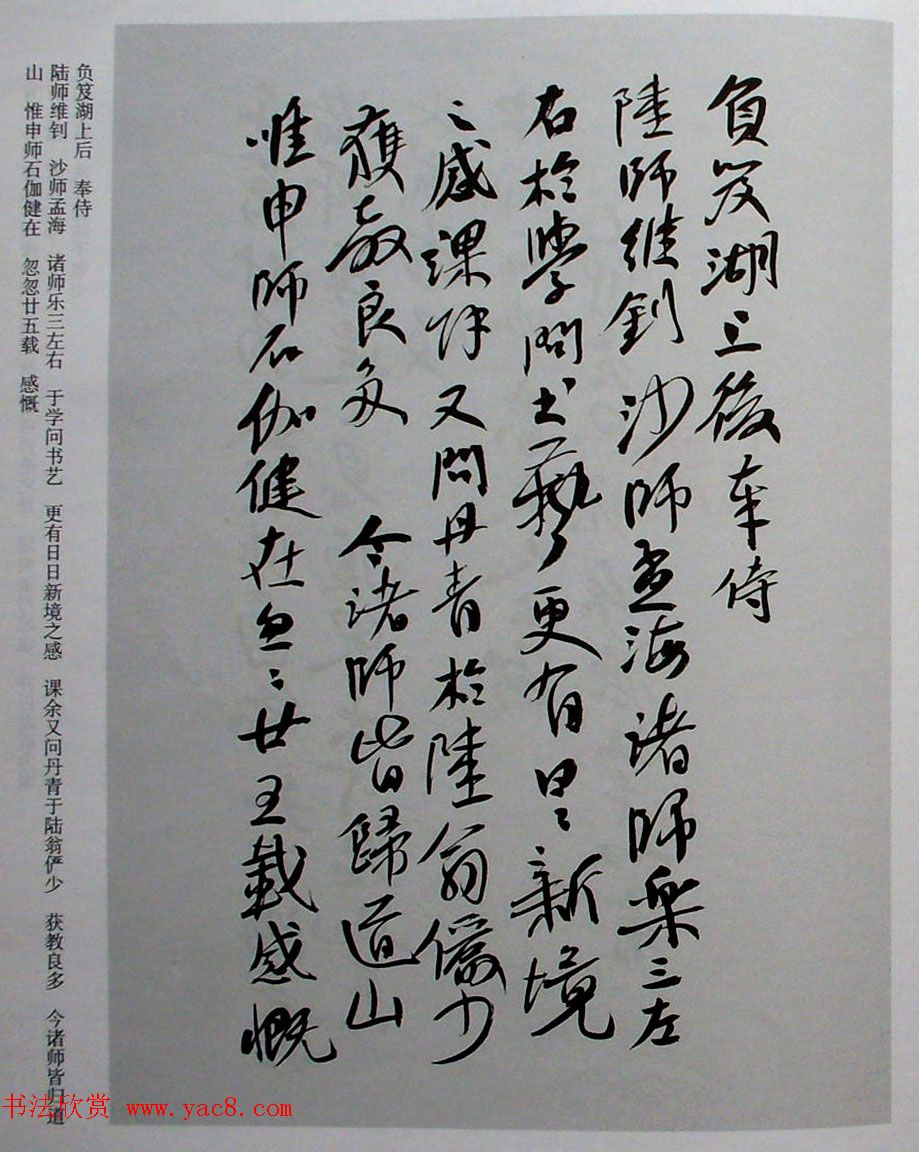 負笈湖上後奉侍
陸師維釗 沙師孟海諸師樂三左
右於學問書藝更有日〻新境
之感課餘又問丹青於陸翁儼少
獲教良多 今諸師皆歸道山
唯申師石伽健在忽〻廿五載感慨
负笈湖上后 奉侍
陆师维钊 沙师孟海 诸师乐三左右 于学问书艺 更有日日新境之感 课余又问丹青于陆翁俨少 获教良多 今诸师皆归道
山 惟申师石伽健在 忽忽廿五载 感慨
书法欣赏 www.yac8.com